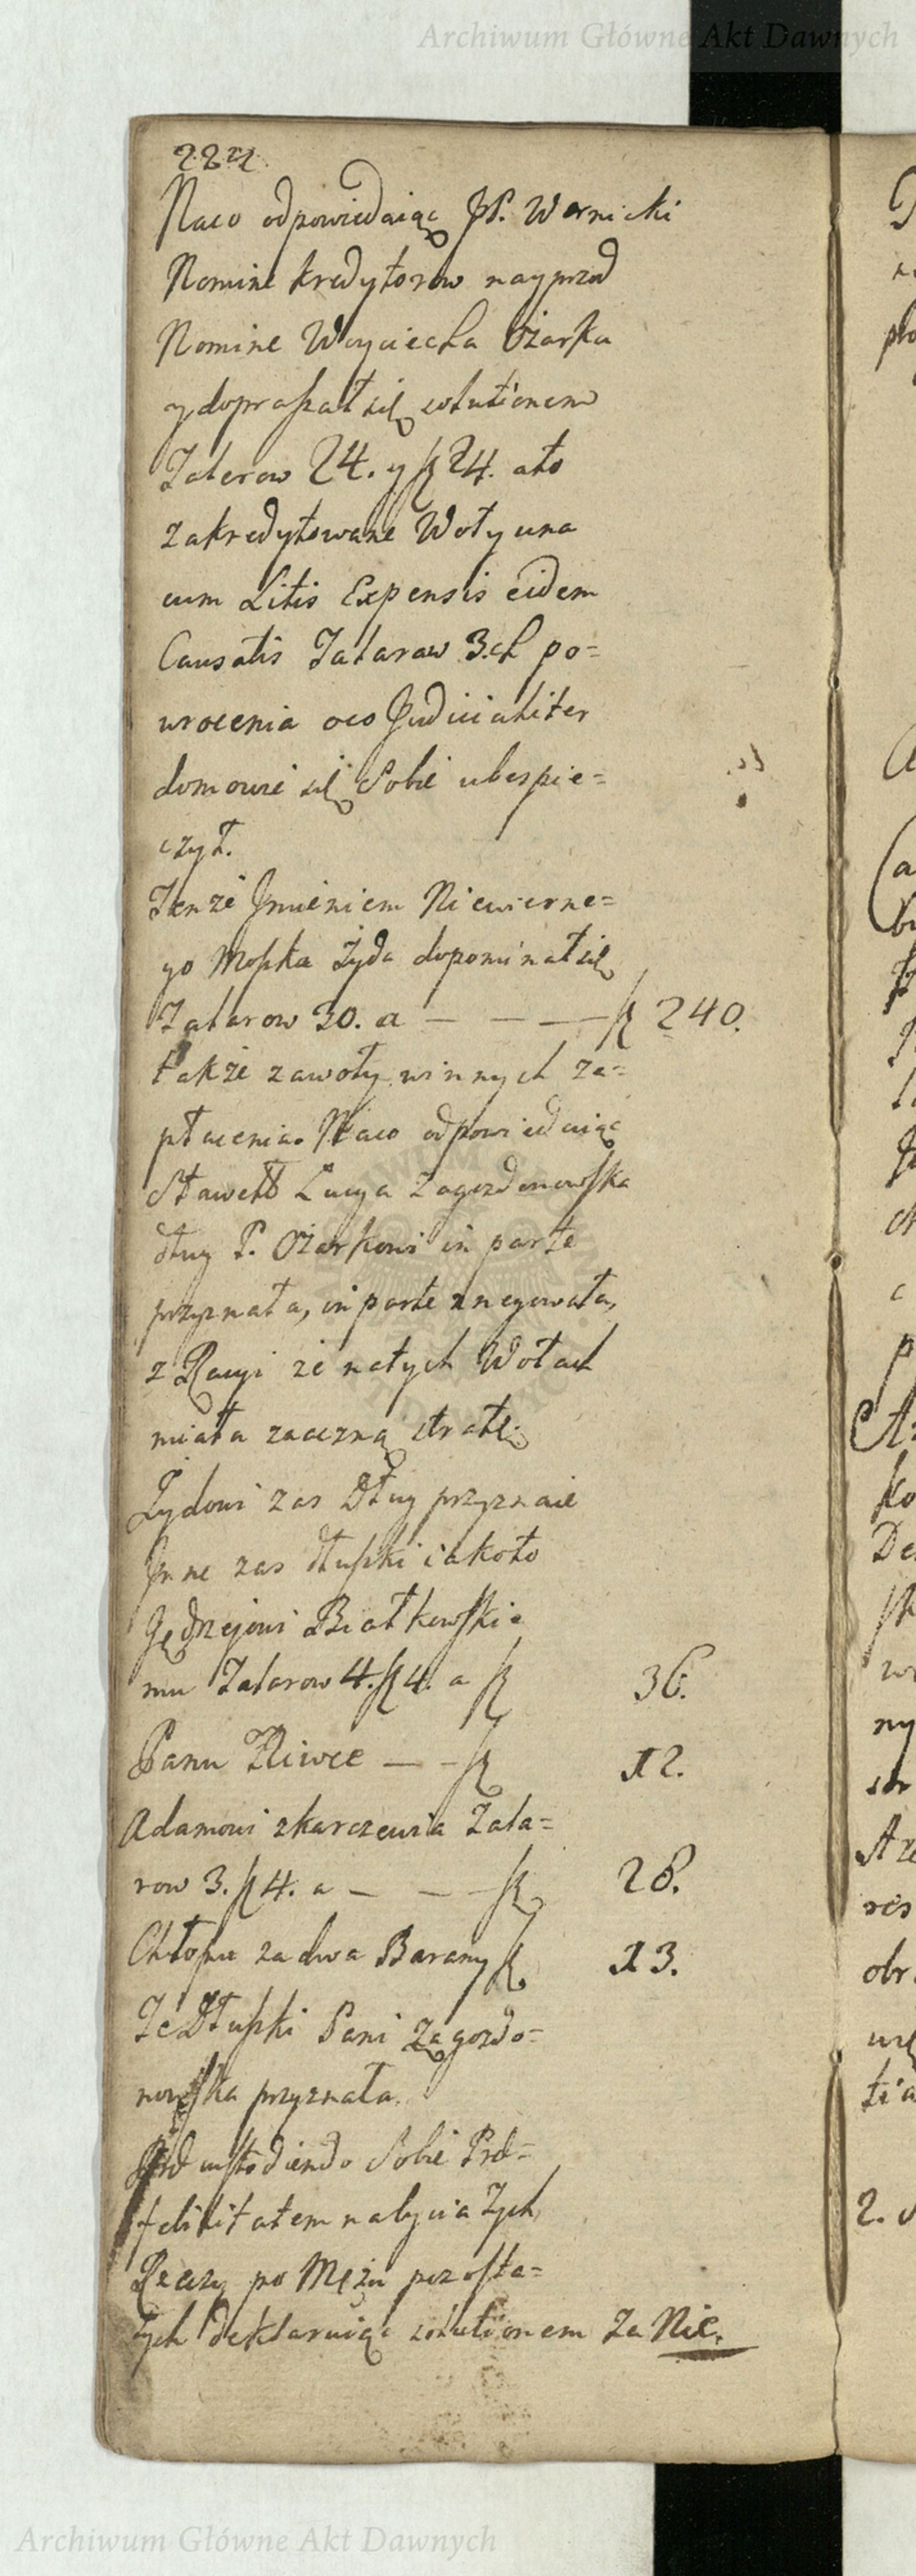 Archiwum Główne Akt Dawnych
222.
Naco odpowiedaiąc JP. Wernicki
Nomine kredytorow nayprzod
Nomine Woyciecha Ożarka
y dopraszał się solutionem
Talerow 24. y 24. ato
zakredytowane Woły una
cum Litis Expensis eidem
Causatis Talarow 3.ch po=
wrocenia oco Judicialiter
domowic się Sobie ubespie=
czył.
Tenże Jmieniem Niewierne=
go Moszka Żyda dopominał się
Talarow 30. a — — — 240.
także zawoły winnych za=
płacenia. Naco odpowiedaiąc
Sławetto Lucya Zagozdonowska
dług P. Ożarkowi in parte
przyznała, in parte znegowała,
z Racyi że natych Wołach
miała znaczną stratę.
Żydowi zas Dług przyznaie
Jnne zas dłuszki iakoto
Jędrzejowi Białkowskie
mu Talarow 4. 4. a 36.
Panu Zliwce — — 12.
Adamowi zkarczewia Tala=
row 3. 4. a — — — 28.
Chłopu za dwa Barany 13.
Te Dłuszki Pani Zagozdo=
nowska przyznała.
custodiendo Sobie
nabycia Tych
Rzeczy po Mężu pozosta=
łych deklaruiąc solutionem Za Nie.
Archiwum Główne Akt Dawnych